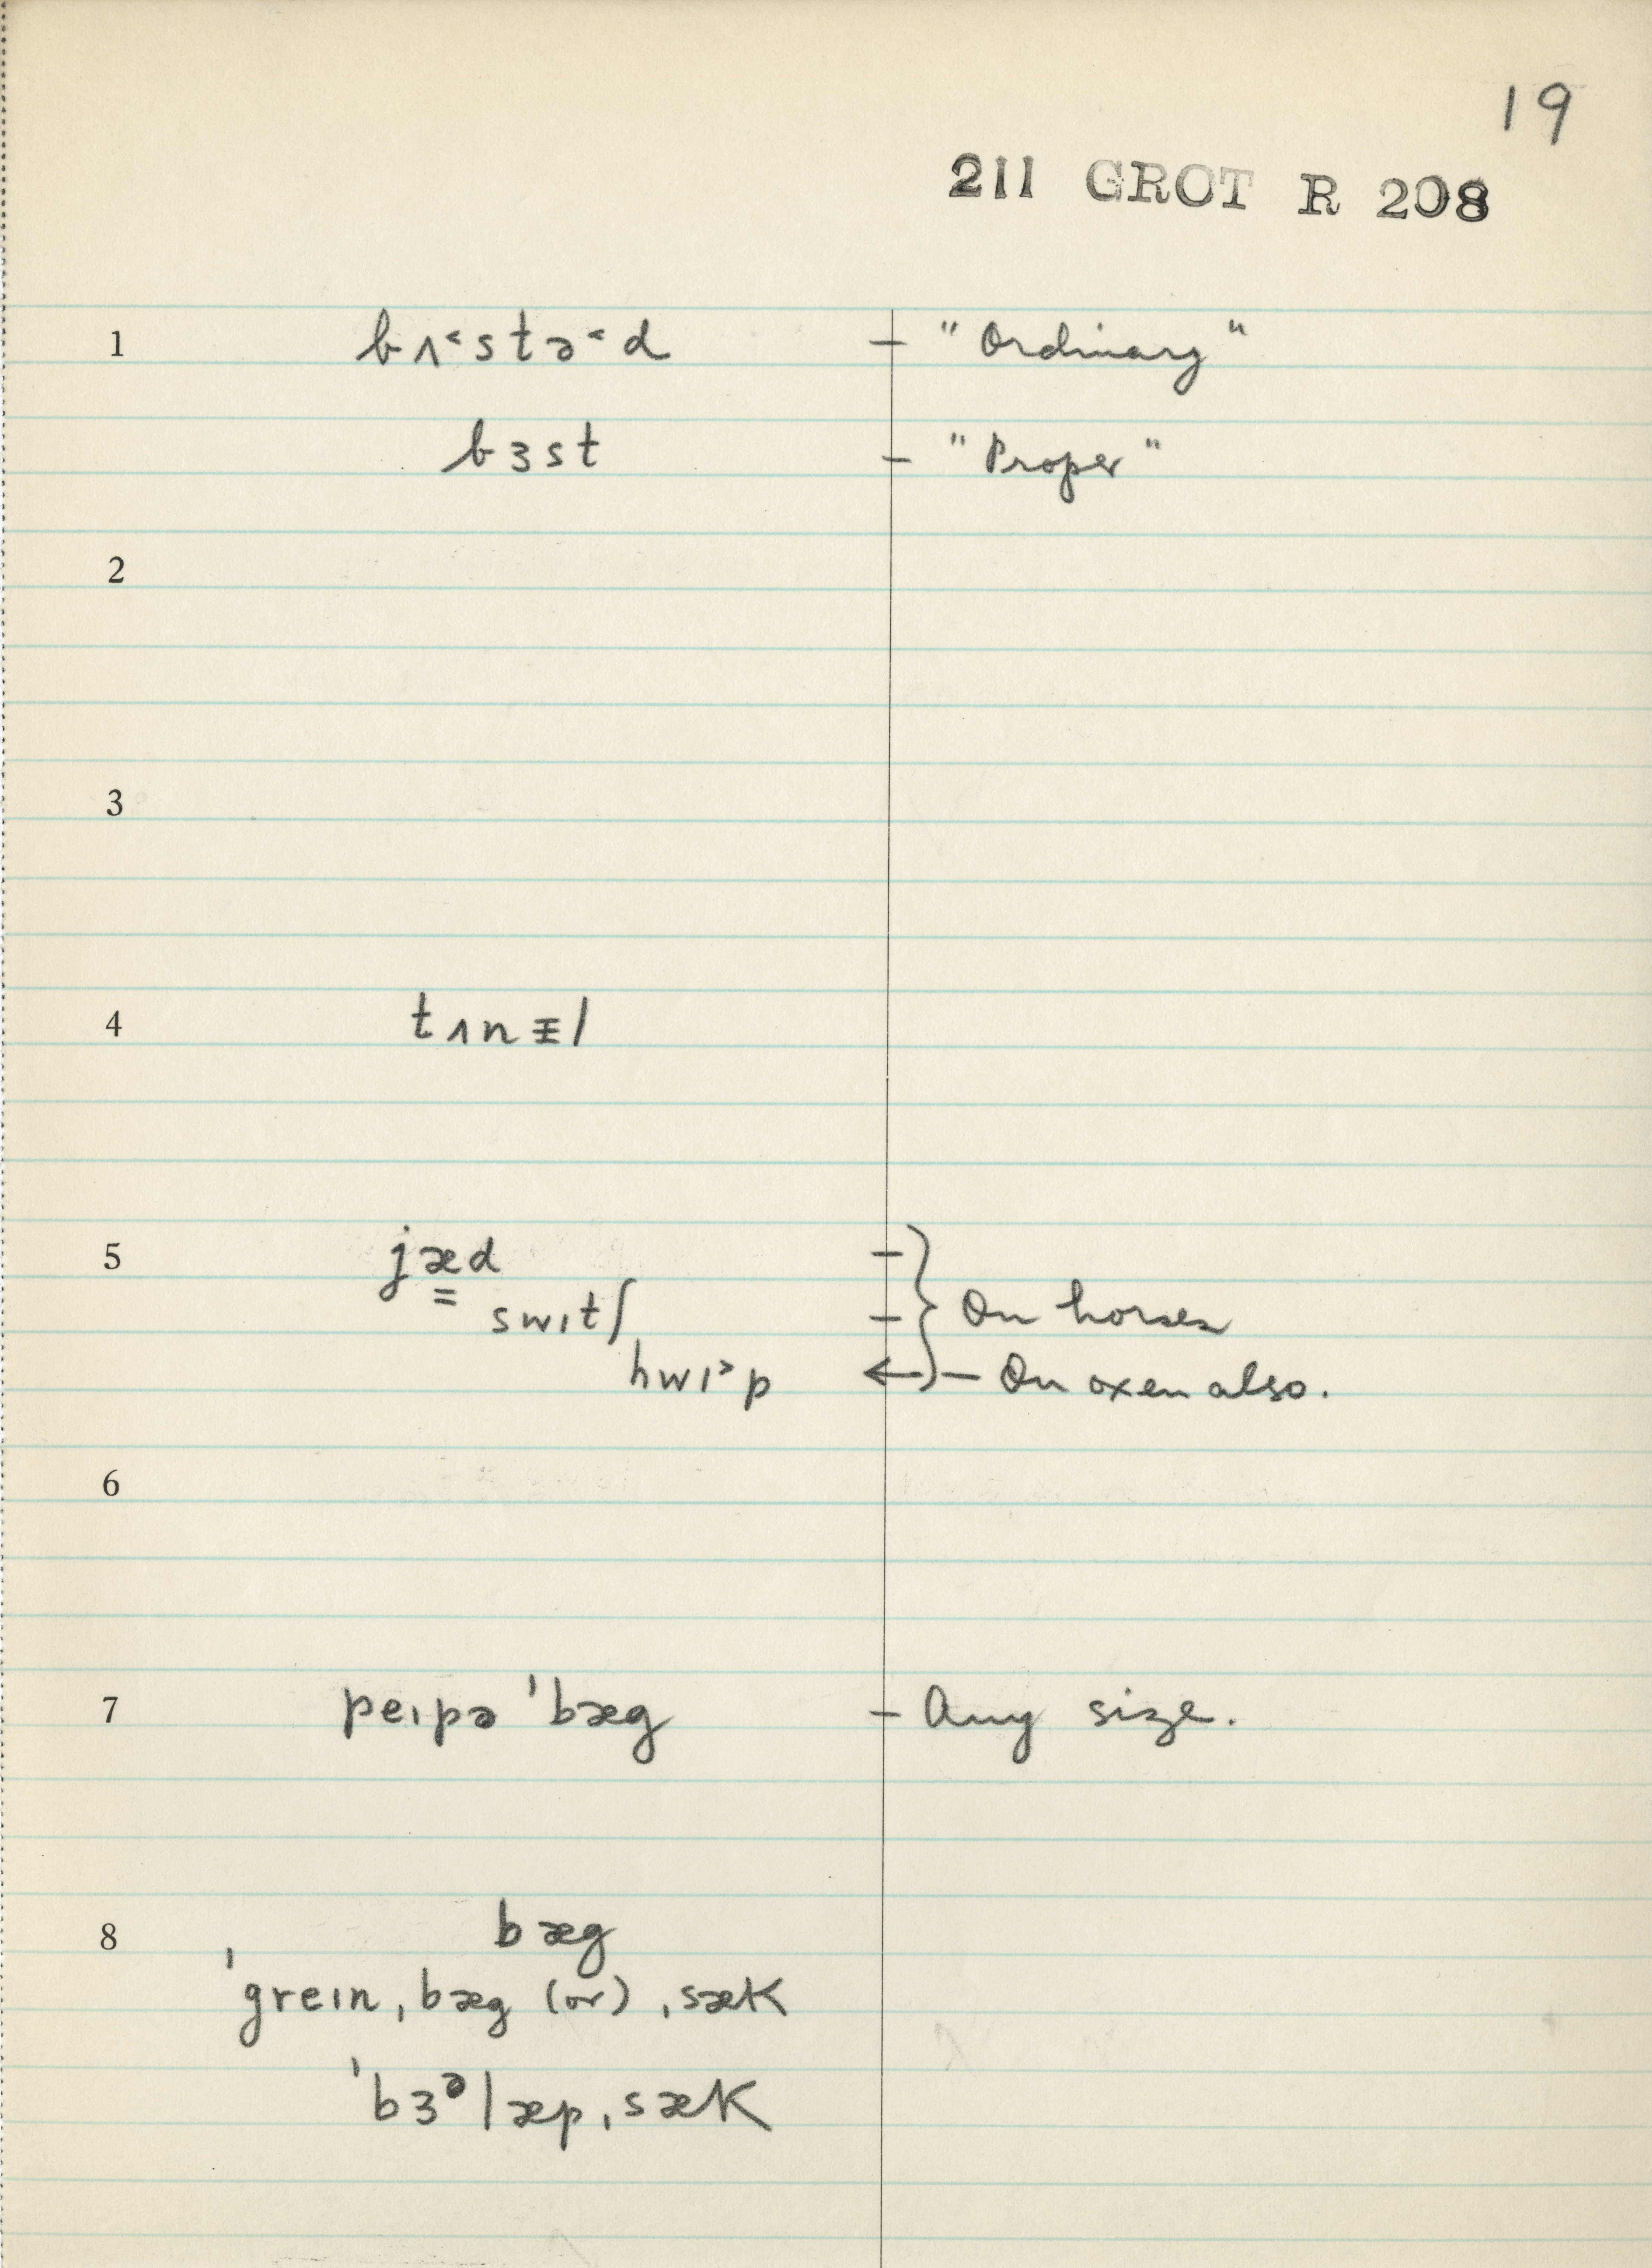 19
211 GROT R 208
1 bʌ˂stə˂d – "Ordinary"
bɜst – "Proper"
2
3
4 tʌnᵻl
5 jæ̳d –
swɪtʃ – } On horses
hwɪ˃p ← – On oxen also.
6
7 peɪpə ˈbæg – Any size.
8 bæg
ˈgreɪnˌbæg (or) ˌsæk
ˈbɜᵊlæpˌsæk